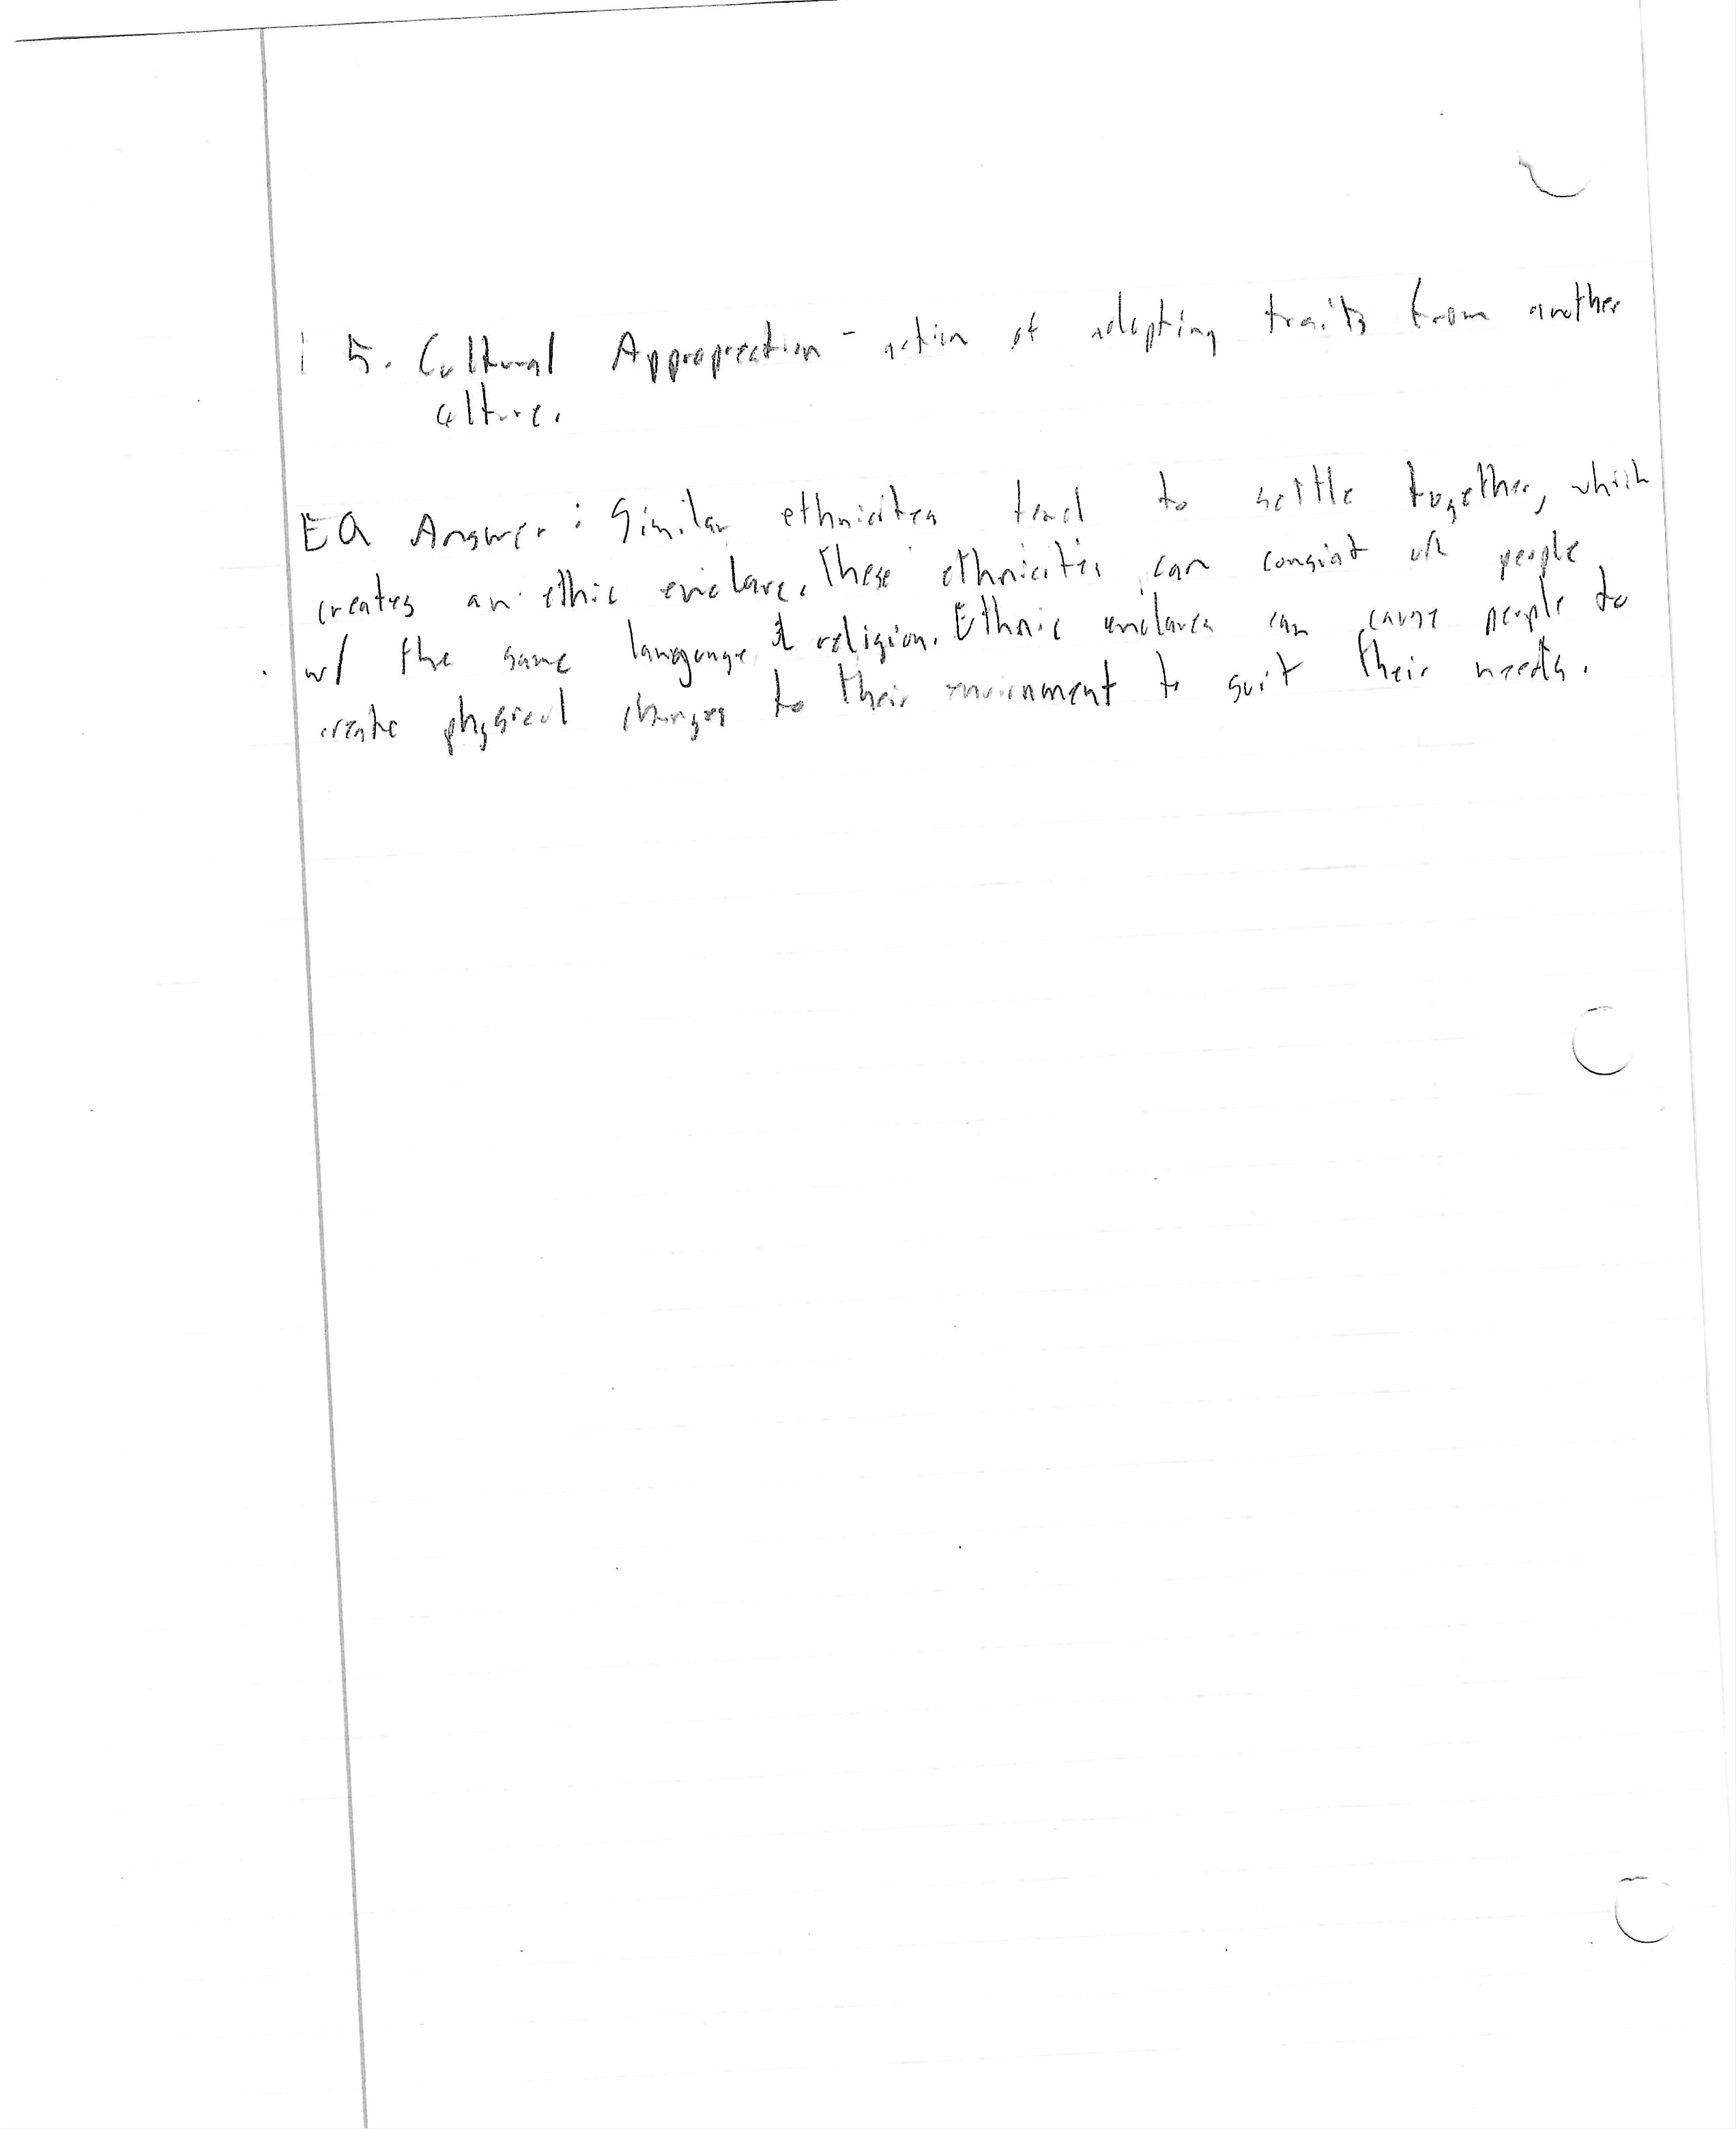 5. Cultural Appropreation - action of adopting traits from another
culture.
EQ Answer: Similar ethnicites tend to settle together, which
creates an ethic enclave. These ethnicities can consist of people
w/ the same langauge & religion. Ethnic enclaves can cause people to
create physical changes to their enviornment to suit their needs.